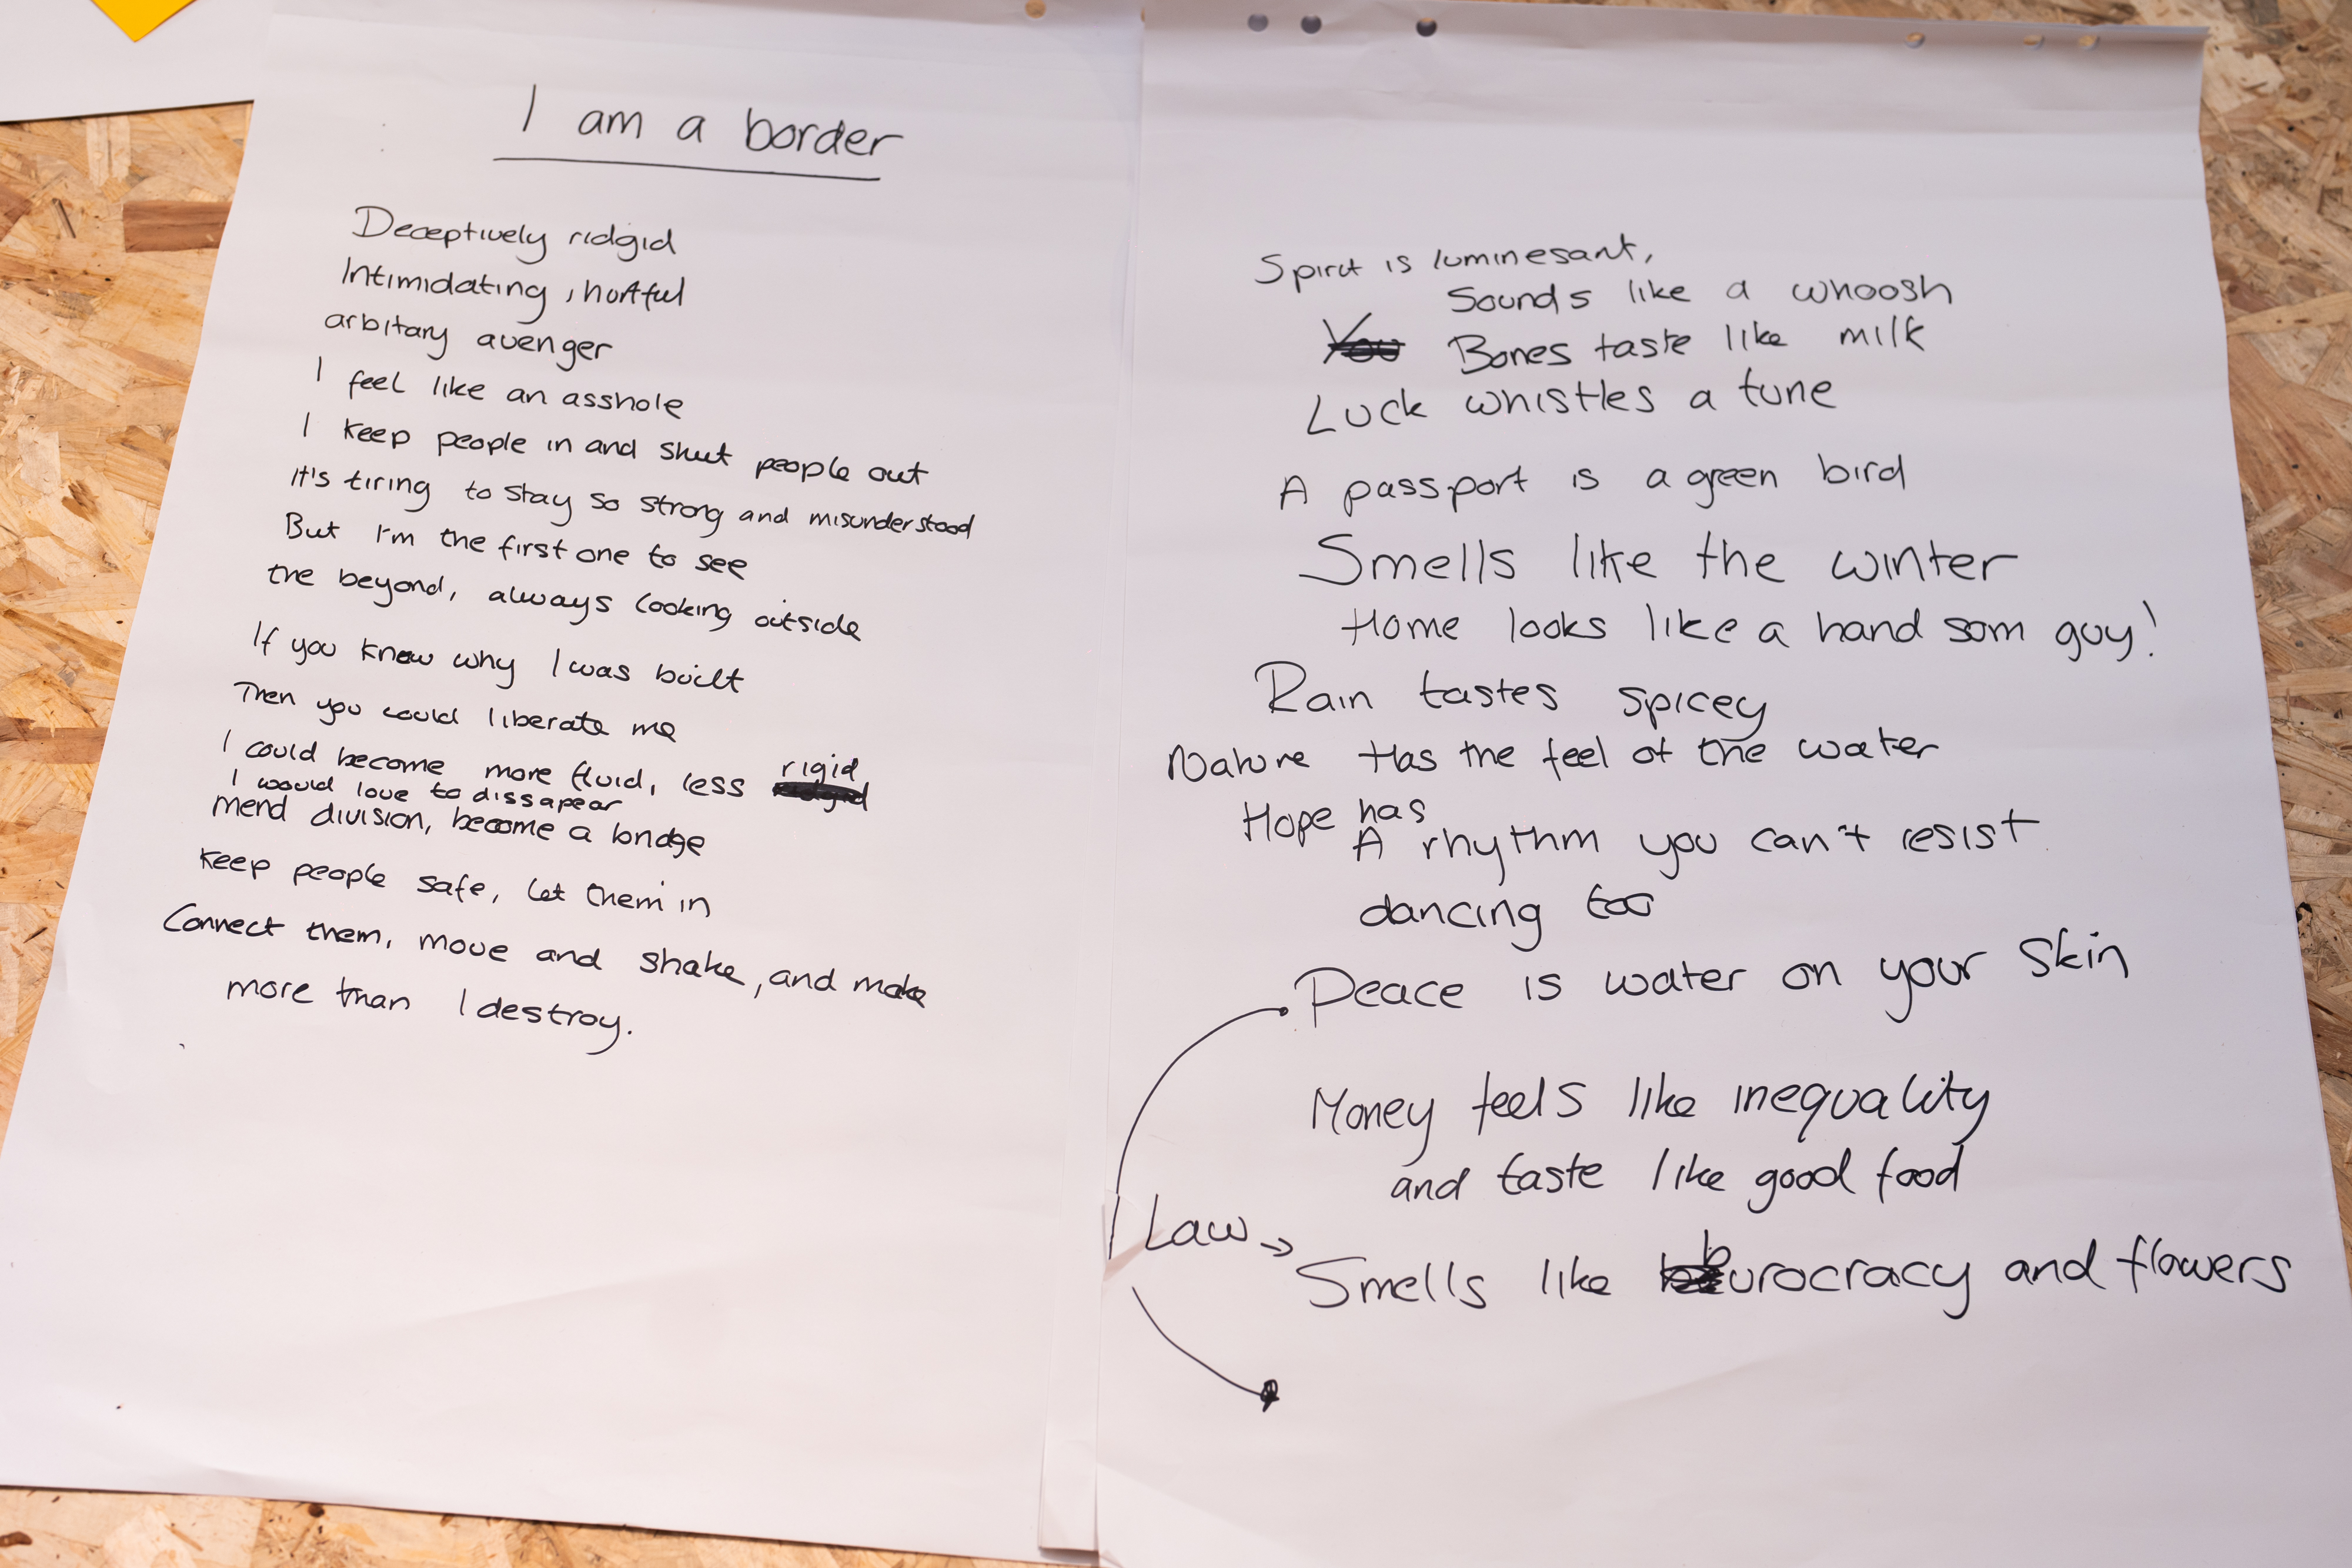 I am a border
Deceptively ridgid
Intimidating, hurtful
arbitary avenger
I feel like an asshole
I keep people in and shut people out
it's tiring to stay so strong and misunderstood
But I'm the first one to see
the beyond, always looking outside
If you knew why I was built
Then you could liberate me
I could become more fluid, less rigid
I would love to dissapear
mend division, become a bridge
keep people safe, let them in
Connect them, move and shake, and make
more than I destroy.
Spirit is luminesant,
Sounds like a whoosh
You Bones taste like milk
Luck whistles a tune
A passport is a green bird
Smells like the winter
Home looks like a hand som guy!
Rain tastes spicey
Nature Has the feel of the water
Hope has
A rhythm you can't resist
dancing too
Peace is water on your skin
Money feels like inequality
and taste like good food
Law → Smells like burocracy and flowers